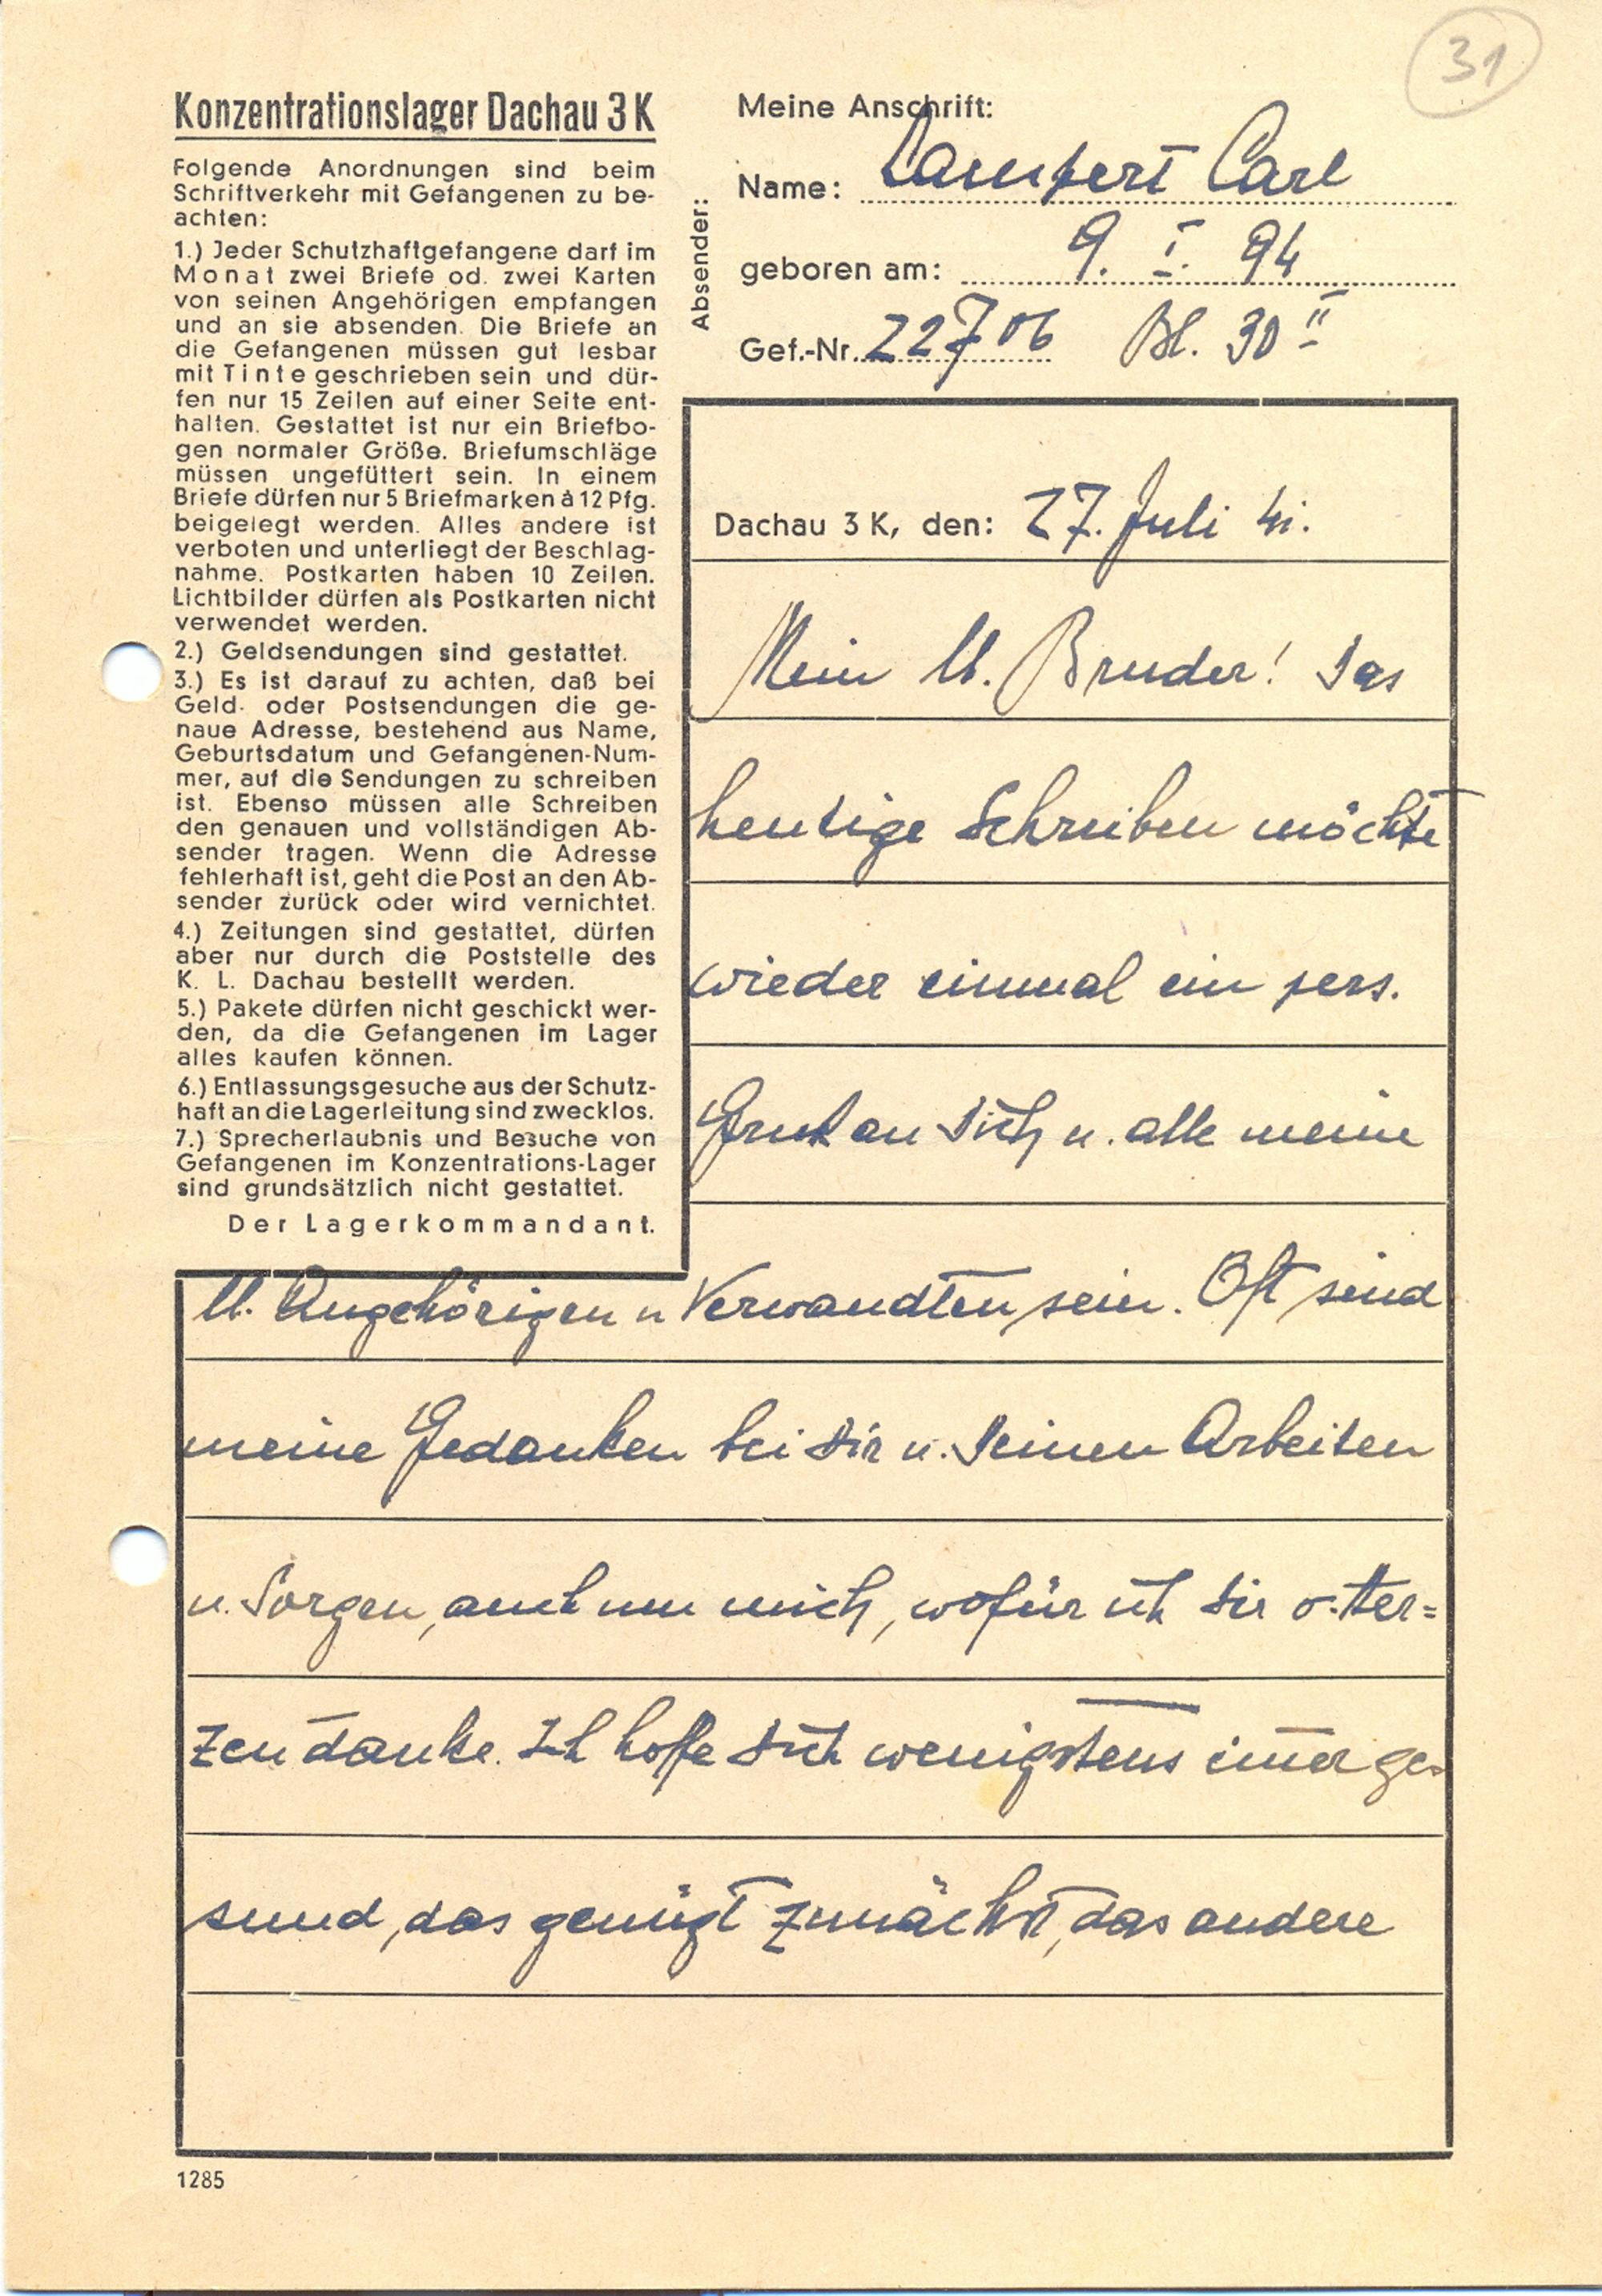 31
Konzentrationslager Dachau 3 K
Folgende Anordnungen sind beim
Schriftverkehr mit Gefangenen zu be-
achten:
1.) Jeder Schutzhaftgefangene darf im
Monat zwei Briefe od. zwei Karten
von seinen Angehörigen empfangen
und an sie absenden. Die Briefe an
die Gefangenen müssen gut lesbar
mit Tinte geschrieben sein und dür-
fen nur 15 Zeilen auf einer Seite ent-
halten. Gestattet ist nur ein Briefbo-
gen normaler Größe. Briefumschläge
müssen ungefüttert sein. In einem
Briefe dürfen nur 5 Briefmarken à 12 Pfg.
beigelegt werden. Alles andere ist
verboten und unterliegt der Beschlag-
nahme. Postkarten haben 10 Zeilen.
Lichtbilder dürfen als Postkarten nicht
verwendet werden.
2.) Geldsendungen sind gestattet.
3.) Es ist darauf zu achten, daß bei
Geld- oder Postsendungen die ge-
naue Adresse, bestehend aus Name,
Geburtsdatum und Gefangenen-Num-
mer, auf die Sendungen zu schreiben
ist. Ebenso müssen alle Schreiben
den genauen und vollständigen Ab-
sender tragen. Wenn die Adresse
fehlerhaft ist, geht die Post an den Ab-
sender zurück oder wird vernichtet.
4.) Zeitungen sind gestattet, dürfen
aber nur durch die Poststelle des
K. L. Dachau bestellt werden.
5.) Pakete dürfen nicht geschickt wer-
den, da die Gefangenen im Lager
alles kaufen können.
6.) Entlassungsgesuche aus der Schutz-
haft an die Lagerleitung sind zwecklos.
7.) Sprecherlaubnis und Besuche von
Gefangenen im Konzentrations-Lager
sind grundsätzlich nicht gestattet.
Der Lagerkommandant.
Absender:
Meine Anschrift:
Name: Lampert Carl
geboren am: 9. I. 94
Gef.-Nr. 22706 Bl. 30 II
Dachau 3 K, den: 27. Juli 41.
Mein lb. Bruder! Das
heutige Schreiben möchte
wieder einmal ein pers.
Gruß an Dich u. alle meine
lb. Angehörigen u Verwandten sein. Oft sind
meine Gedanken bei Dir u. Deinen Arbeiten
u. Sorgen, auch um mich, wofür ich Dir v. Her=
zen danke. Ich hoffe Dich wenigstens im̄er ge-
sund, das genügt zunächst, das andere
1285